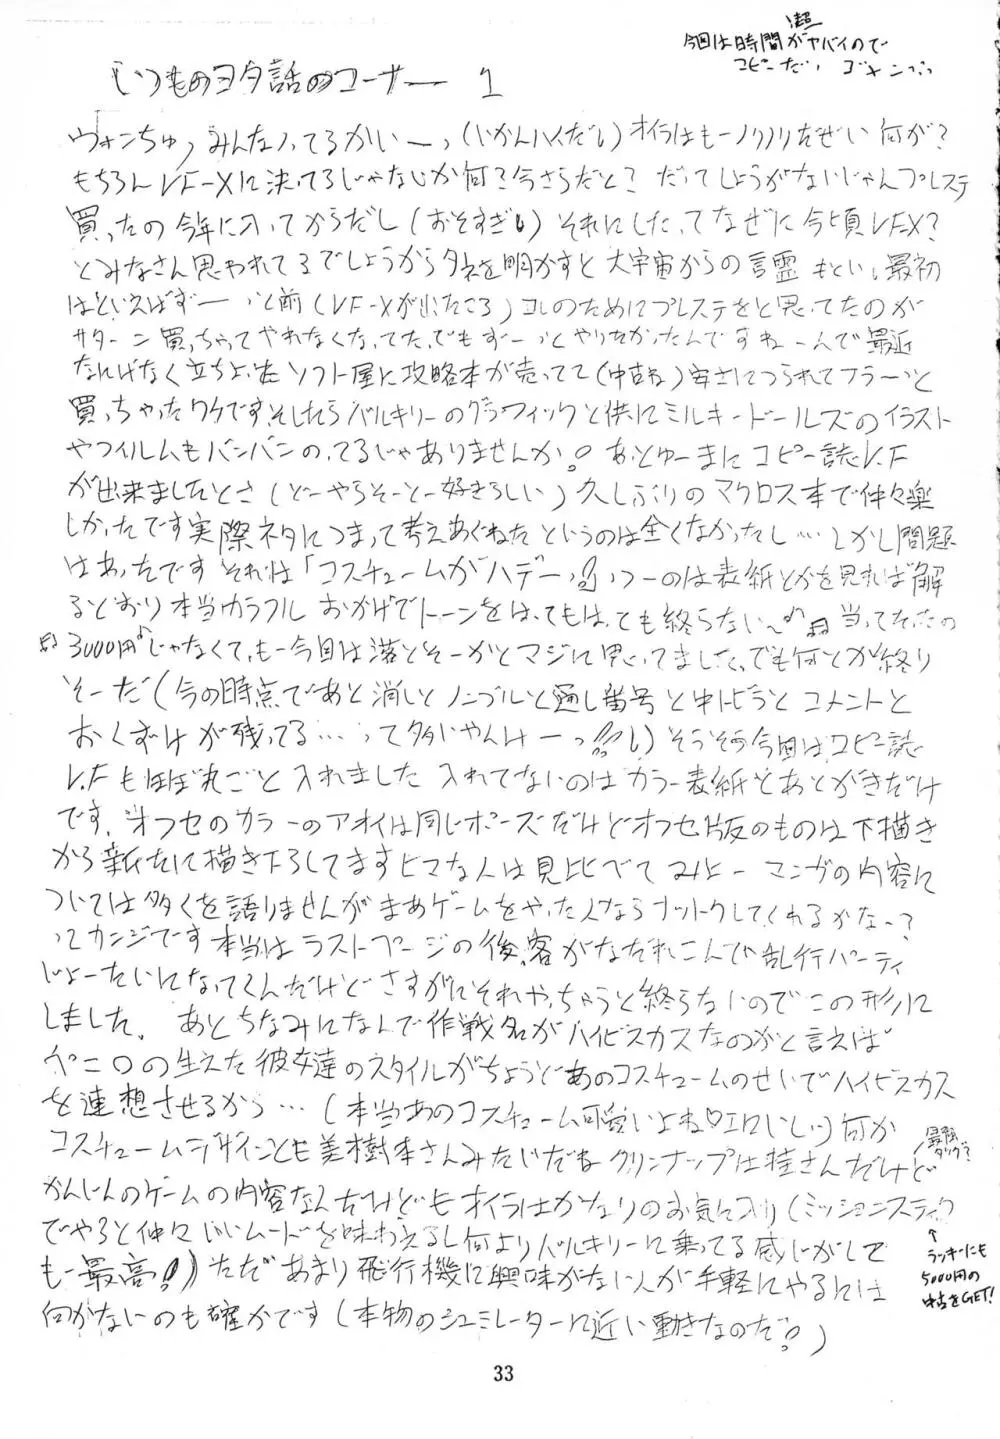 今回は時間が超ヤバイので
コピーだい ゴメンブゥ
いつものヨタ話のコーナー 1
ウォンちゅっみんなノってるかいーっ(いかんハイだし)オイラはもーノリノリだぜい何が?
もちろんVF-Xに決ってるじゃないか何?今さらだと?だってしょうがないじゃんプレステ
買ったの今年に入ってからだし(おそすぎい)それにしたってなぜに今頃VFX?
とみなさん思われてるでしょうからタネを明かすと大宇宙からの言霊もとい、最初
はといえばずーっと前(VF-Xが出たころ)コレのためにプレステをと思ってたのが
サターン買っちゃってやれなくなってた、でもずーっとやりたかったんですねーんで最近
なにげなく立ちよったソフト屋に攻略本が売ってて(中古ね)安さにつられてフラーっと
買っちゃったワケです、そしたらバルキリーのグラフィックと供にミルキードールズのイラスト
やフィルムもバンバンのってるじゃありませんか!あっとゆーまにコピー誌V.F
が出来ましたとさ(どーやらそーとー好きらしい)久しぶりのマクロス本で仲々楽
しかったです実際ネタにつまって考えあぐねたというのは全くなかったし…しかし問題
はあったです それは「コスチュームがハデーっ!」っつーのは表紙とかを見れば解
るとおり本当カラフル おかげでトーンをはってもはっても終らない〜♪♬当ってくだの
♬3000円♪じゃなくて、もー今回は落とそーかとマジに思ってました、でも何とか終り
そーだ(今の時点であと消しとノンブルと通し番号と中トビラとコメントと
おくずけが残ってる…って多いやんけーっ!!い)そうそう今回はコピー誌
V.Fもほぼ丸ごと入れました 入れてないのはカラー表紙とあとがきだけ
です、オフセのカラーのアオイは同じポーズだけどオフセ版のものは下描き
から新たに描き下ろしてますヒマな人は見比べてみよー マンガの内容に
ついては多くを語りませんがまあゲームをやった人ならナットクしてくれるかなー?
ってカンジです本当はラストページの後、客がなだれこんで乱行パーティ
じょーたいになってくんだけどさすがにそれやっちゃうと終らないのでこの形に
しました。 あとちなみになんで作戦名がハイビスカスなのかと言えば
ペニ〇の生えた彼女達のスタイルがちょうどあのコスチュームのせいでハイビスカス
を連想させるから…(本当あのコスチューム可愛いよね♡エロいしッ)何か
コスチュームデザインとも美樹本さんみたいだねクリンナップは桂さんだけど
かんじんのゲームの内容なんだけどもオイラはかなりのお気に入り(ミッションスティク
でやると仲々いいムードを味わえるし何よりバルキリーに乗ってる感じがして
もー最高!)ただあまり飛行機に興味がない人が手軽にやるには
向かないのも確かです(本物のシュミレーターに近い動きなのだ!)
最強タッグ?
↑
ラッキーにも
5000円の
中古をGET!
33